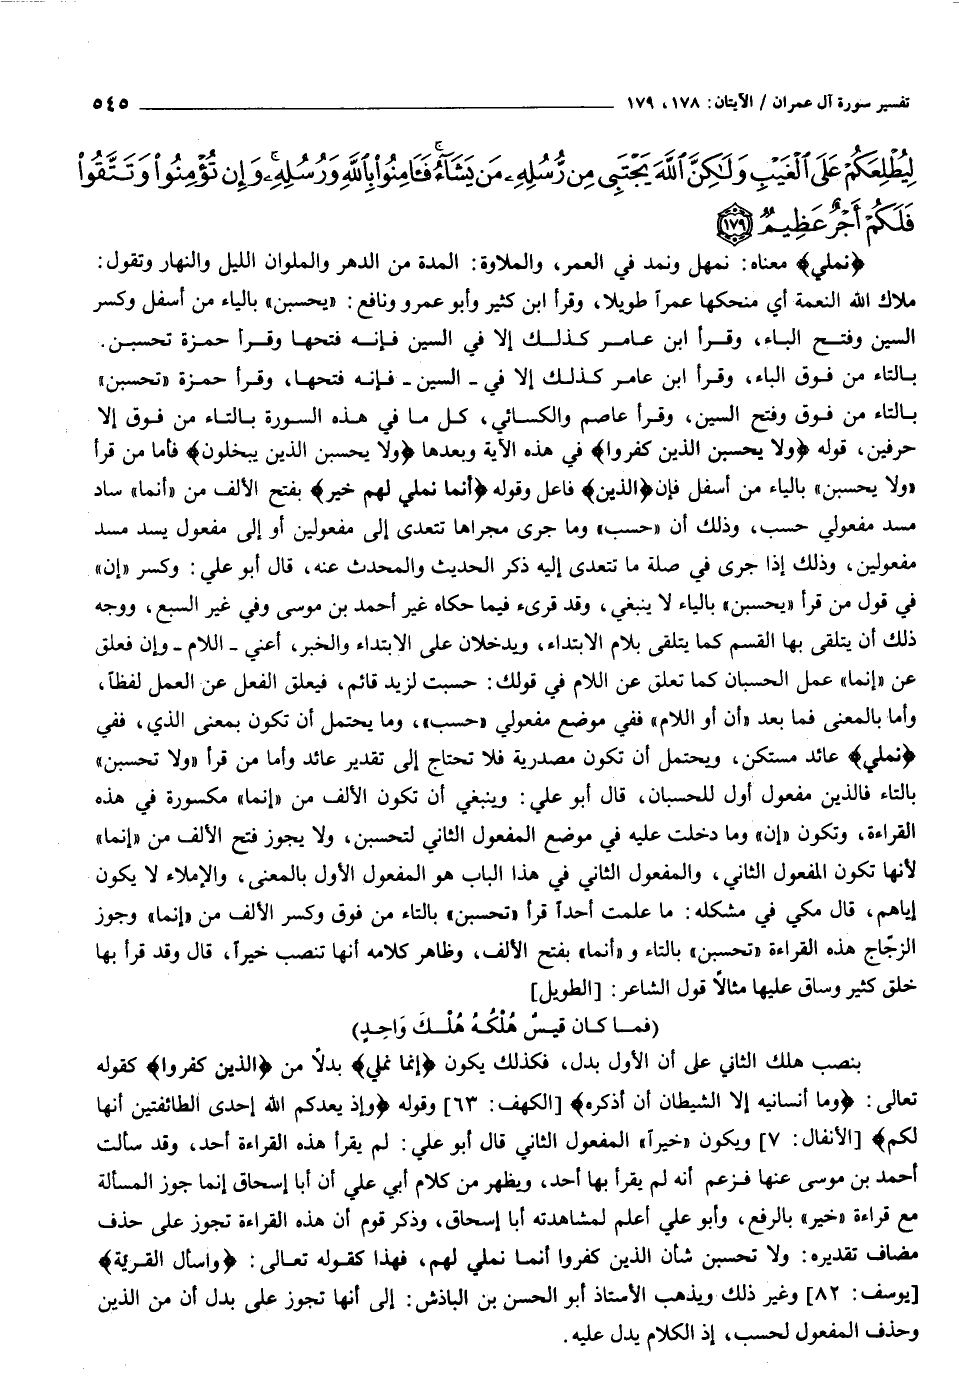 تفسير سورة آل عمران / الآيتان: ١٧٨، ١٧٩ ٥٤٥
لِيُطْلِعَكُمْ عَلَى ٱلْغَيْبِ وَلَٰكِنَّ ٱللَّهَ يَجْتَبِى مِن رُّسُلِهِۦ مَن يَشَآءُۖ فَـَٔامِنُوا۟ بِٱللَّهِ وَرُسُلِهِۦۚ وَإِن تُؤْمِنُوا۟ وَتَتَّقُوا۟
فَلَكُمْ أَجْرٌ عَظِيمٌ ١٧٩
﴿نملي﴾ معناه: نمهل ونمد في العمر، والملاوة: المدة من الدهر والملوان الليل والنهار وتقول:
ملاك الله النعمة أي منحكها عمراً طويلا، وقرأ ابن كثير وأبو عمرو ونافع: «يحسبن» بالياء من أسفل وكسر
السين وفتح الباء، وقرأ ابن عامر كذلك إلا في السين فإنه فتحها وقرأ حمزة تحسبن.
بالتاء من فوق الباء، وقرأ ابن عامر كذلك إلا في - السين - فإنه فتحها، وقرأ حمزة «تحسبن»
بالتاء من فوق وفتح السين، وقرأ عاصم والكسائي، كل ما في هذه السورة بالتاء من فوق إلا
حرفين، قوله ﴿ولا يحسبن الذين كفروا﴾ في هذه الآية وبعدها ﴿ولا يحسبن الذين يبخلون﴾ فأما من قرأ
«ولا يحسبن» بالياء من أسفل فإن ﴿الذين﴾ فاعل وقوله ﴿أنما نملي لهم خير﴾ بفتح الألف من «أنما» ساد
مسد مفعولي حسب، وذلك أن «حسب» وما جرى مجراها تتعدى إلى مفعولين أو إلى مفعول يسد مسد
مفعولين، وذلك إذا جرى في صلة ما تتعدى إليه ذكر الحديث والمحدث عنه، قال أبو علي: وكسر «إن»
في قول من قرأ «يحسبن» بالياء لا ينبغي، وقد قرىء فيما حكاه غير أحمد بن موسى وفي غير السبع، ووجه
ذلك أن يتلقى بها القسم كما يتلقى بلام الابتداء، ويدخلان على الابتداء والخبر، أعني - اللام - وإن فعلق
عن «إنما» عمل الحسبان كما تعلق عن اللام في قولك: حسبت لزيد قائم، فيعلق الفعل عن العمل لفظاً،
وأما بالمعنى فما بعد «أن أو اللام» ففي موضع مفعولي «حسب»، وما يحتمل أن تكون بمعنى الذي، ففي
﴿نملي﴾ عائد مستكن، ويحتمل أن تكون مصدرية فلا تحتاج إلى تقدير عائد وأما من قرأ «ولا تحسبن»
بالتاء فالذين مفعول أول للحسبان، قال أبو علي: وينبغي أن تكون الألف من «إنما» مكسورة في هذه
القراءة، وتكون «إن» وما دخلت عليه في موضع المفعول الثاني لتحسبن، ولا يجوز فتح الألف من «إنما»
لأنها تكون المفعول الثاني، والمفعول الثاني في هذا الباب هو المفعول الأول بالمعنى، والإملاء لا يكون
إياهم، قال مكي في مشكله: ما علمت أحداً قرأ «تحسبن» بالتاء من فوق وكسر الألف من «إنما» وجوز
الزجّاج هذه القراءة «تحسبن» بالتاء و «أنما» بفتح الألف، وظاهر كلامه أنها تنصب خيراً، قال وقد قرأ بها
خلق كثير وساق عليها مثالاً قول الشاعر: [الطويل]
(فما كان قيسٌ هُلْكُهُ هُلْكَ وَاحِدٍ)
بنصب هلك الثاني على أن الأول بدل، فكذلك يكون ﴿إنما نملي﴾ بدلاً من ﴿الذين كفروا﴾ كقوله
تعالى: ﴿وما أنسانيه إلا الشيطان أن أذكره﴾ [الكهف: ٦٣] وقوله ﴿وإذ يعدكم الله إحدى الطائفتين أنها
لكم﴾ [الأنفال: ٧] ويكون «خيراً» المفعول الثاني قال أبو علي: لم يقرأ هذه القراءة أحد، وقد سألت
أحمد بن موسى عنها فزعم أنه لم يقرأ بها أحد، ويظهر من كلام أبي علي أن أبا إسحاق إنما جوز المسألة
مع قراءة «خير» بالرفع، وأبو علي أعلم لمشاهدته أبا إسحاق، وذكر قوم أن هذه القراءة تجوز على حذف
مضاف تقديره: ولا تحسبن شأن الذين كفروا أنما نملي لهم، فهذا كقوله تعالى: ﴿واسأل القرية﴾
[يوسف: ٨٢] وغير ذلك ويذهب الأستاذ أبو الحسن بن الباذش: إلى أنها تجوز على بدل أن من الذين
وحذف المفعول لحسب، إذ الكلام يدل عليه.